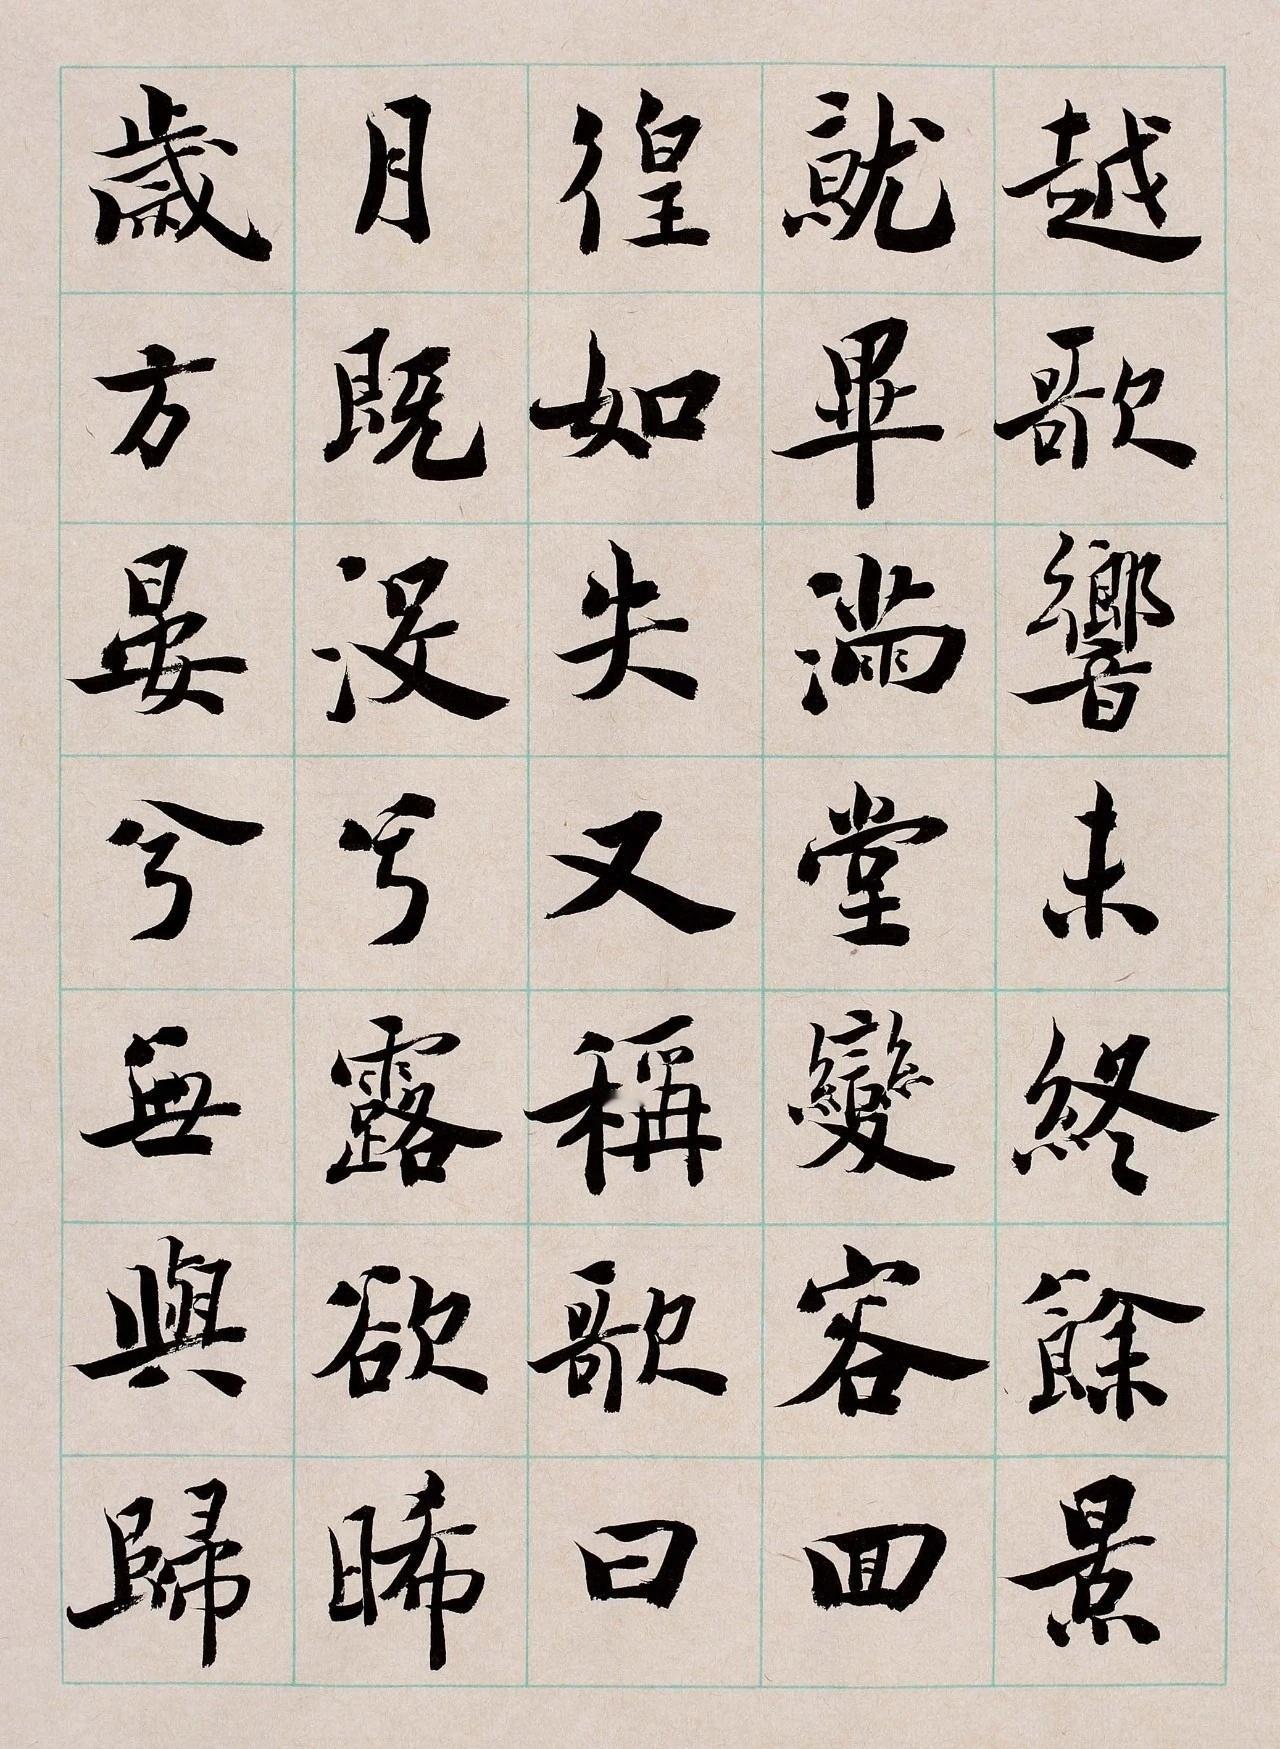 越歌響未終餘景
就畢滿堂變容回
徨如失又稱歌曰
月既没兮露欲晞
歲方晏兮無與歸